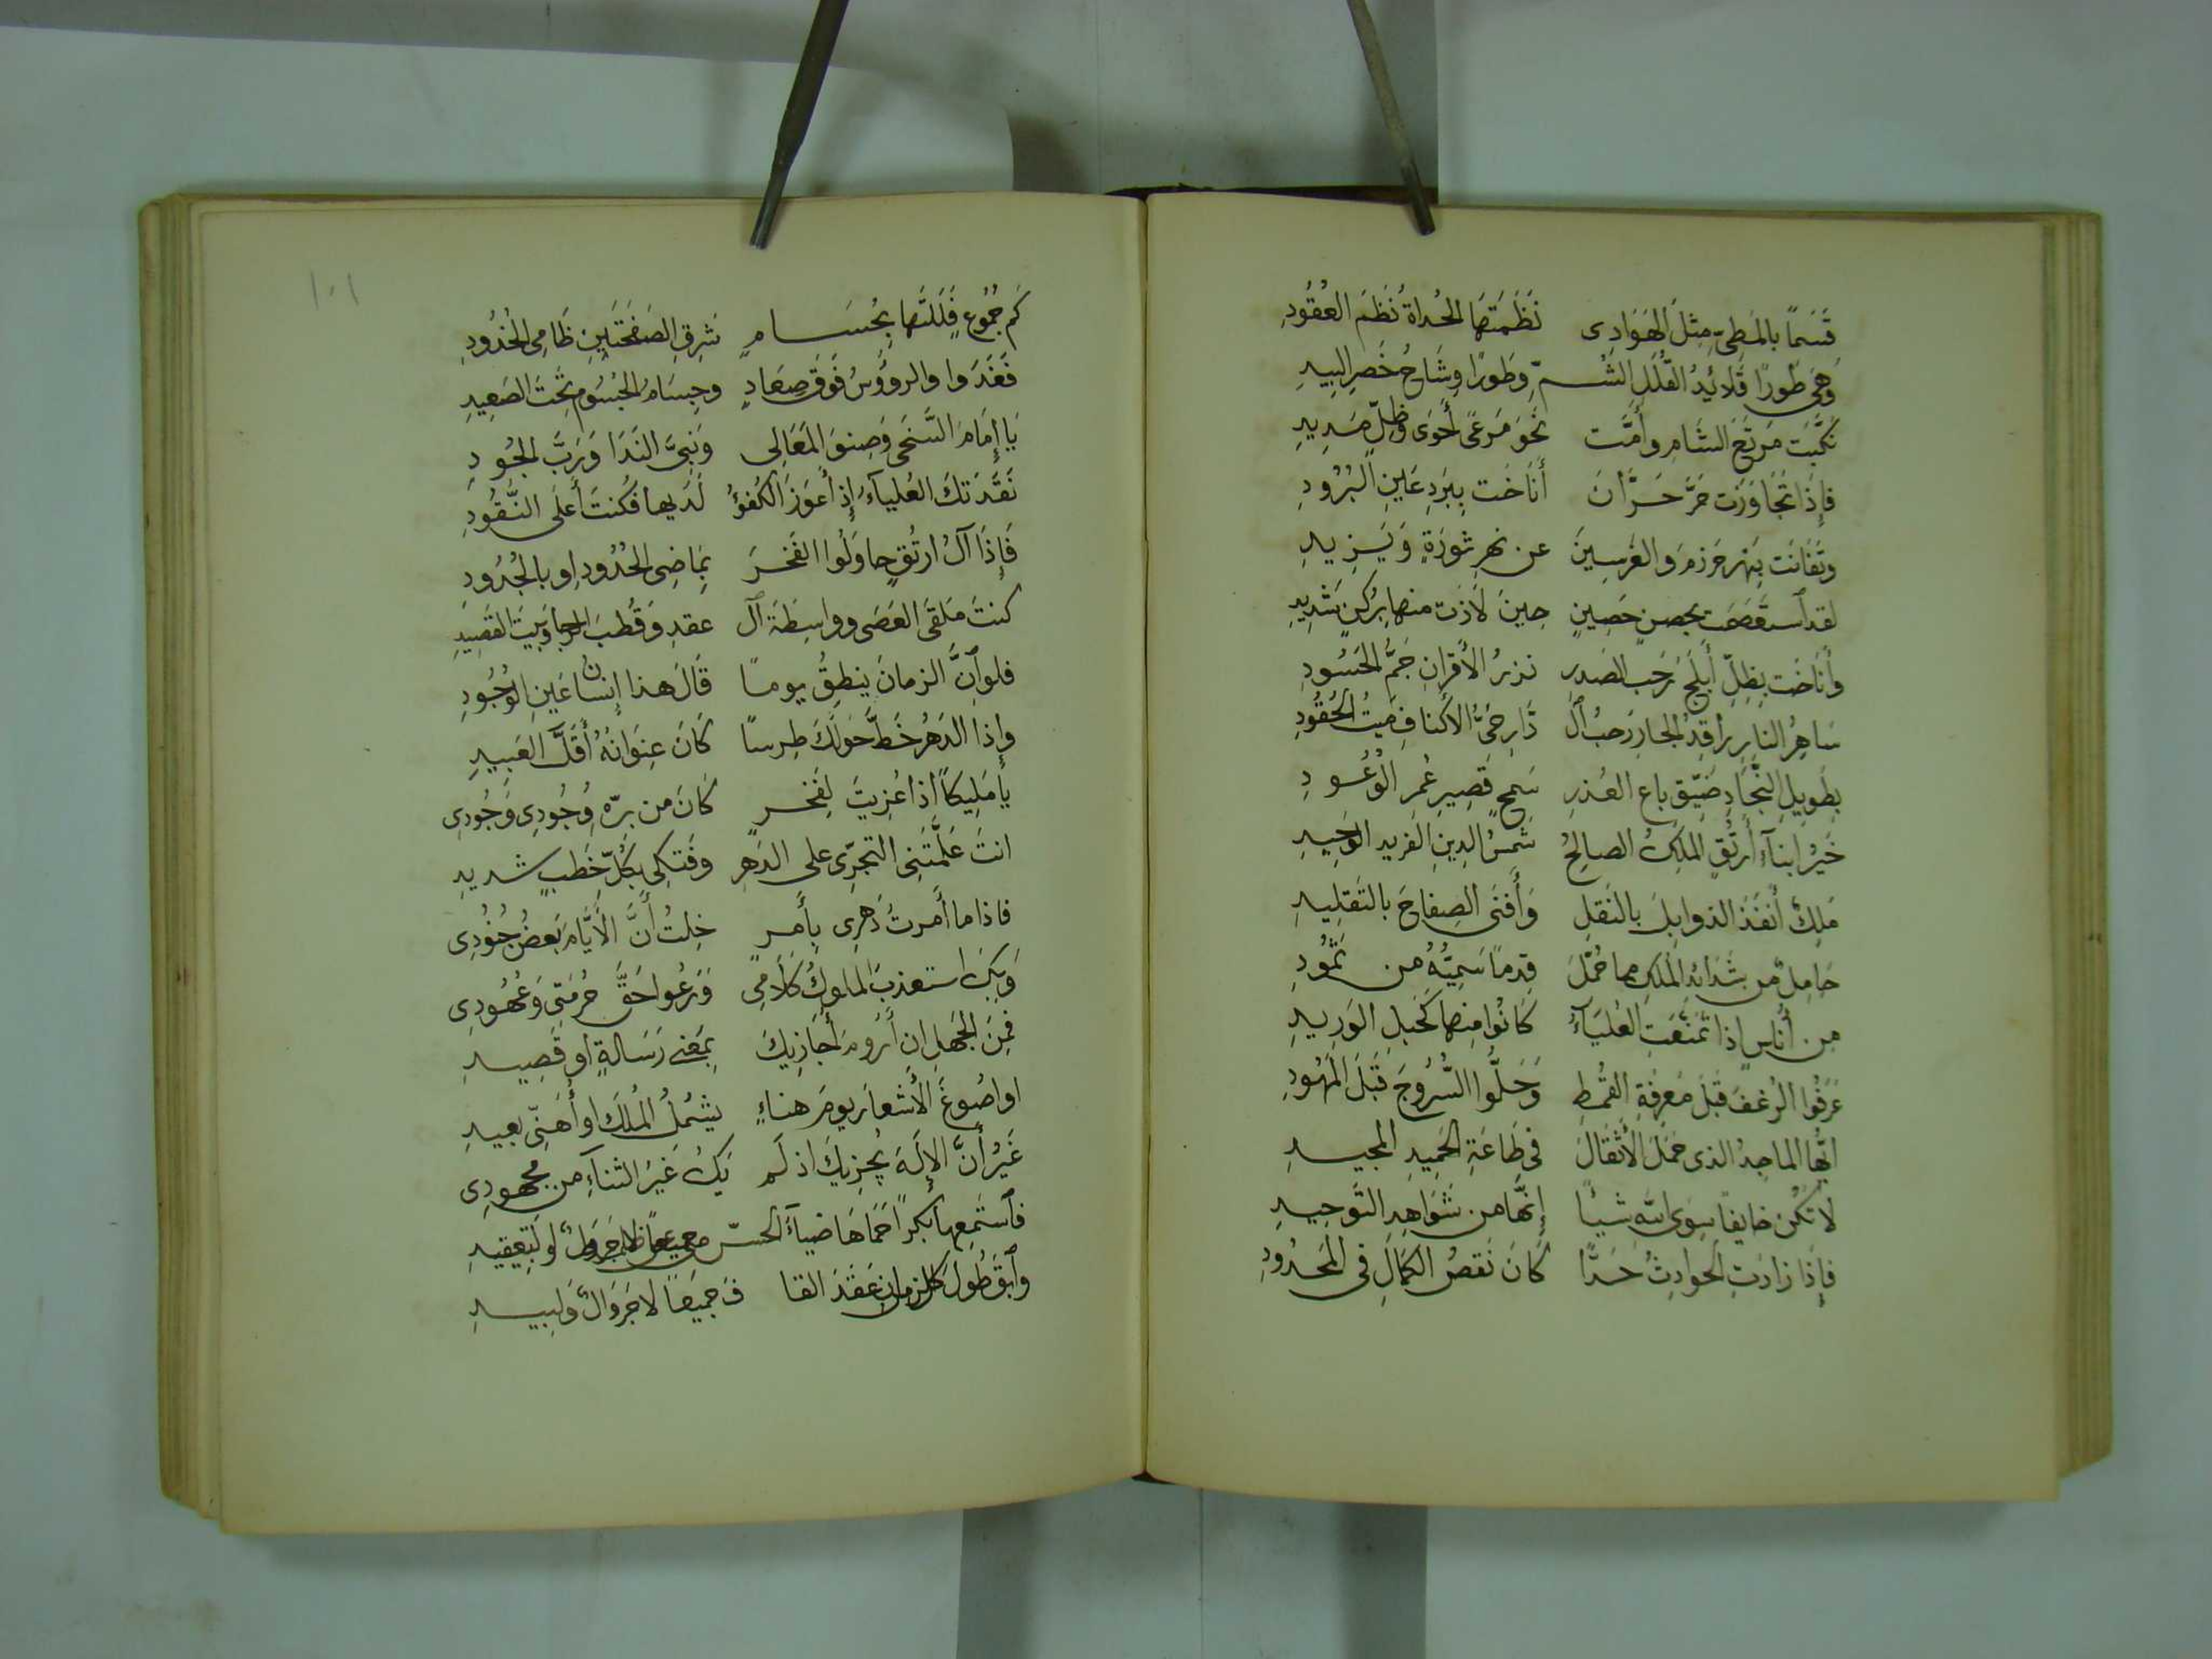 قَسَمًا بالمَطِىِّ مِثلَ الهَوَادِى نَظَمَتهَا الحُداةُ نَظمَ العُقُودِ
وَهىَ طَورًا قَلائِدُ القُلَلِ الشُمِّ وطَورًا وِشَاحُ خَصرِ البِيدِ
نَكَّبَت مَرتَعَ الشَامِ وأَمَّت نَحوَ مَرعًى أَحوَى وظِلٍّ مَدِيدِ
فإِذَا تجَاوَزَت حَرَّ حَرَّانَ أَنَاخَت بِبَردِ عَينِ البُرُودِ
وتَفَانَت بِنَهر حَرزمَ والغَرسِينَ عن نهرِ ثورَةٍ وَيَزِيدِ
لقد استَعصَمَت بحصنٍ حَصِينٍ حِينَ لاَذَت منها بِرُكنٍ شَدِيدِ
وأَنَاخَت بِظِلِّ أَبلَجَ رَحبِ الصَدرِ نزرُ الأقرانِ جَمُّ الحَسُودِ
سَاهِرُ النارِ راقِدُ الجَارِ رَحبُ ٱل دَّارِ حَىُّ الأكنافِ مَيتُ الحُقُودِ
بِطَوِيلِ النِجَادِ ضَيِّقِ باعِ العُذرِ سَمحٍ قَصِيرِ عُمرِ الوُعُودِ
خَيرُ ابنآءِ أَرتُقِ الملِكُ الصالِحُ شَمسُ الدِينِ الفَريد الوَحِيدِ
مَلِكٌ أَنفَذَ الذوابِلَ بالنَقلِ وَأَفنَى الصِفاحَ بالتَقلِيدِ
حَامِلٌ من شَدَائدِ المُلكِ مما حُمِّلَ قِدمًا سَمِيُّهُ من ثَمُودِ
من أُناسٍ إذا تَمَنَّعَتِ العُليَآءُ كَانُوا منها كَحَبلِ الوَرِيدِ
عَرَفُوا الزَغفَ قَبلَ مَعرِفَةِ القُمطِ وَحَلُّوا السُّرُوجَ قَبلَ المُهُودِ
ايُّها الماجِدُ الذى حَمَلَ الأثقَالَ فى طَاعَةِ الحَمِيدِ المجِيدِ
لا تَكُن خايفًا سِوَى اللهِ شيئًا إنَّها من شَوَاهِدِ التَوحِيدِ
فإذَا زَادَتِ الحَوادِثُ حَدًّا كَانَ نَقصُ الكَمَالِ فى المَحدُودِ
١٠١
كَم جُمُوعٍ فَلَلتَها بِحُسَامٍ شَرِقِ الصَفحَتَينِ ظَامِى الخُدُودِ
فَغَدَوا والروُؤسُ فَوقَ صِعَادٍ وجِسَامُ الجُسُومِ تَحتَ الصَعِيدِ
يَا إمَامَ السَّخَى وَصِنوَ المَعَالِى وَنَبِىَّ النَدَا وَرَبَّ الجُودِ
نَقَدَتكَ العُلياَءُ إذ أَعوَزَ الكُفؤُ لَدَيها فكُنتَ أَعلَى النُّقُودِ
فَإِذَا آلُ ارتُقٍ حاوَلُوا الفَخرَ بِمَاضِى الحُدُودِ او بالجُدُودِ
كنتَ مَلقَى العَصَى وواسِطَةَ ٱل عقدِ وَقُطبَ الرحَا وَبَيتَ القَصِيدِ
فلو أنَّ الزمانَ يَنطِقُ يومًا قَالَ هذا إنسانُ عَينِ الوُجُودِ
وإذا الدَهرُ خَطَّ حَولَكَ طِرسًا كَانَ عِنوَانَهُ أَقَلَّ العَبِيدِ
يا مَلِيكًا اذا عُزِيتَ لِفَخرٍ كَانَ من برّهِ وُجُودِى وَجُودِى
انتَ عَلَّمتَنِى التجَرِّى على الدَهرِ وفَتكِى بكُلِّ خَطبٍ شديدِ
فاذا ما أَمرتُ دَهرِى بِأَمرٍ خِلتُ أَنَّ الأَيَّامَ بَعضُ جُنُودِى
وَبِكَ استعذبَ الملوكُ كَلاَمِى وَرَعُوا حَقَّ حُرمَتِى وَعُهُودِى
فمِنَ الجَهلِ ان أَرُومَ أُجَازِيكَ بِمَعنى رَسَالةٍ او قَصِيدِ
او اصُوغَ الأشعارَ يومَ هناءٍ يشمُلُ المُلكَ او أُهَنِّى بعيدِ
غَيرُ أَنَّ الإلَهَ يُجزِيكَ اذ لَم يَكُ غَيرُ الثنآءِ من مجهودِى
فٱستَمِعها بكرًا حَمَاهَا ضياَءُ الحسن او لتعقِيدِ
وٱبقَ طُولَ الزمانِ عَقدَ القا فَ جَمِيعًا لا جَروَالٌ وَلبِيدِ